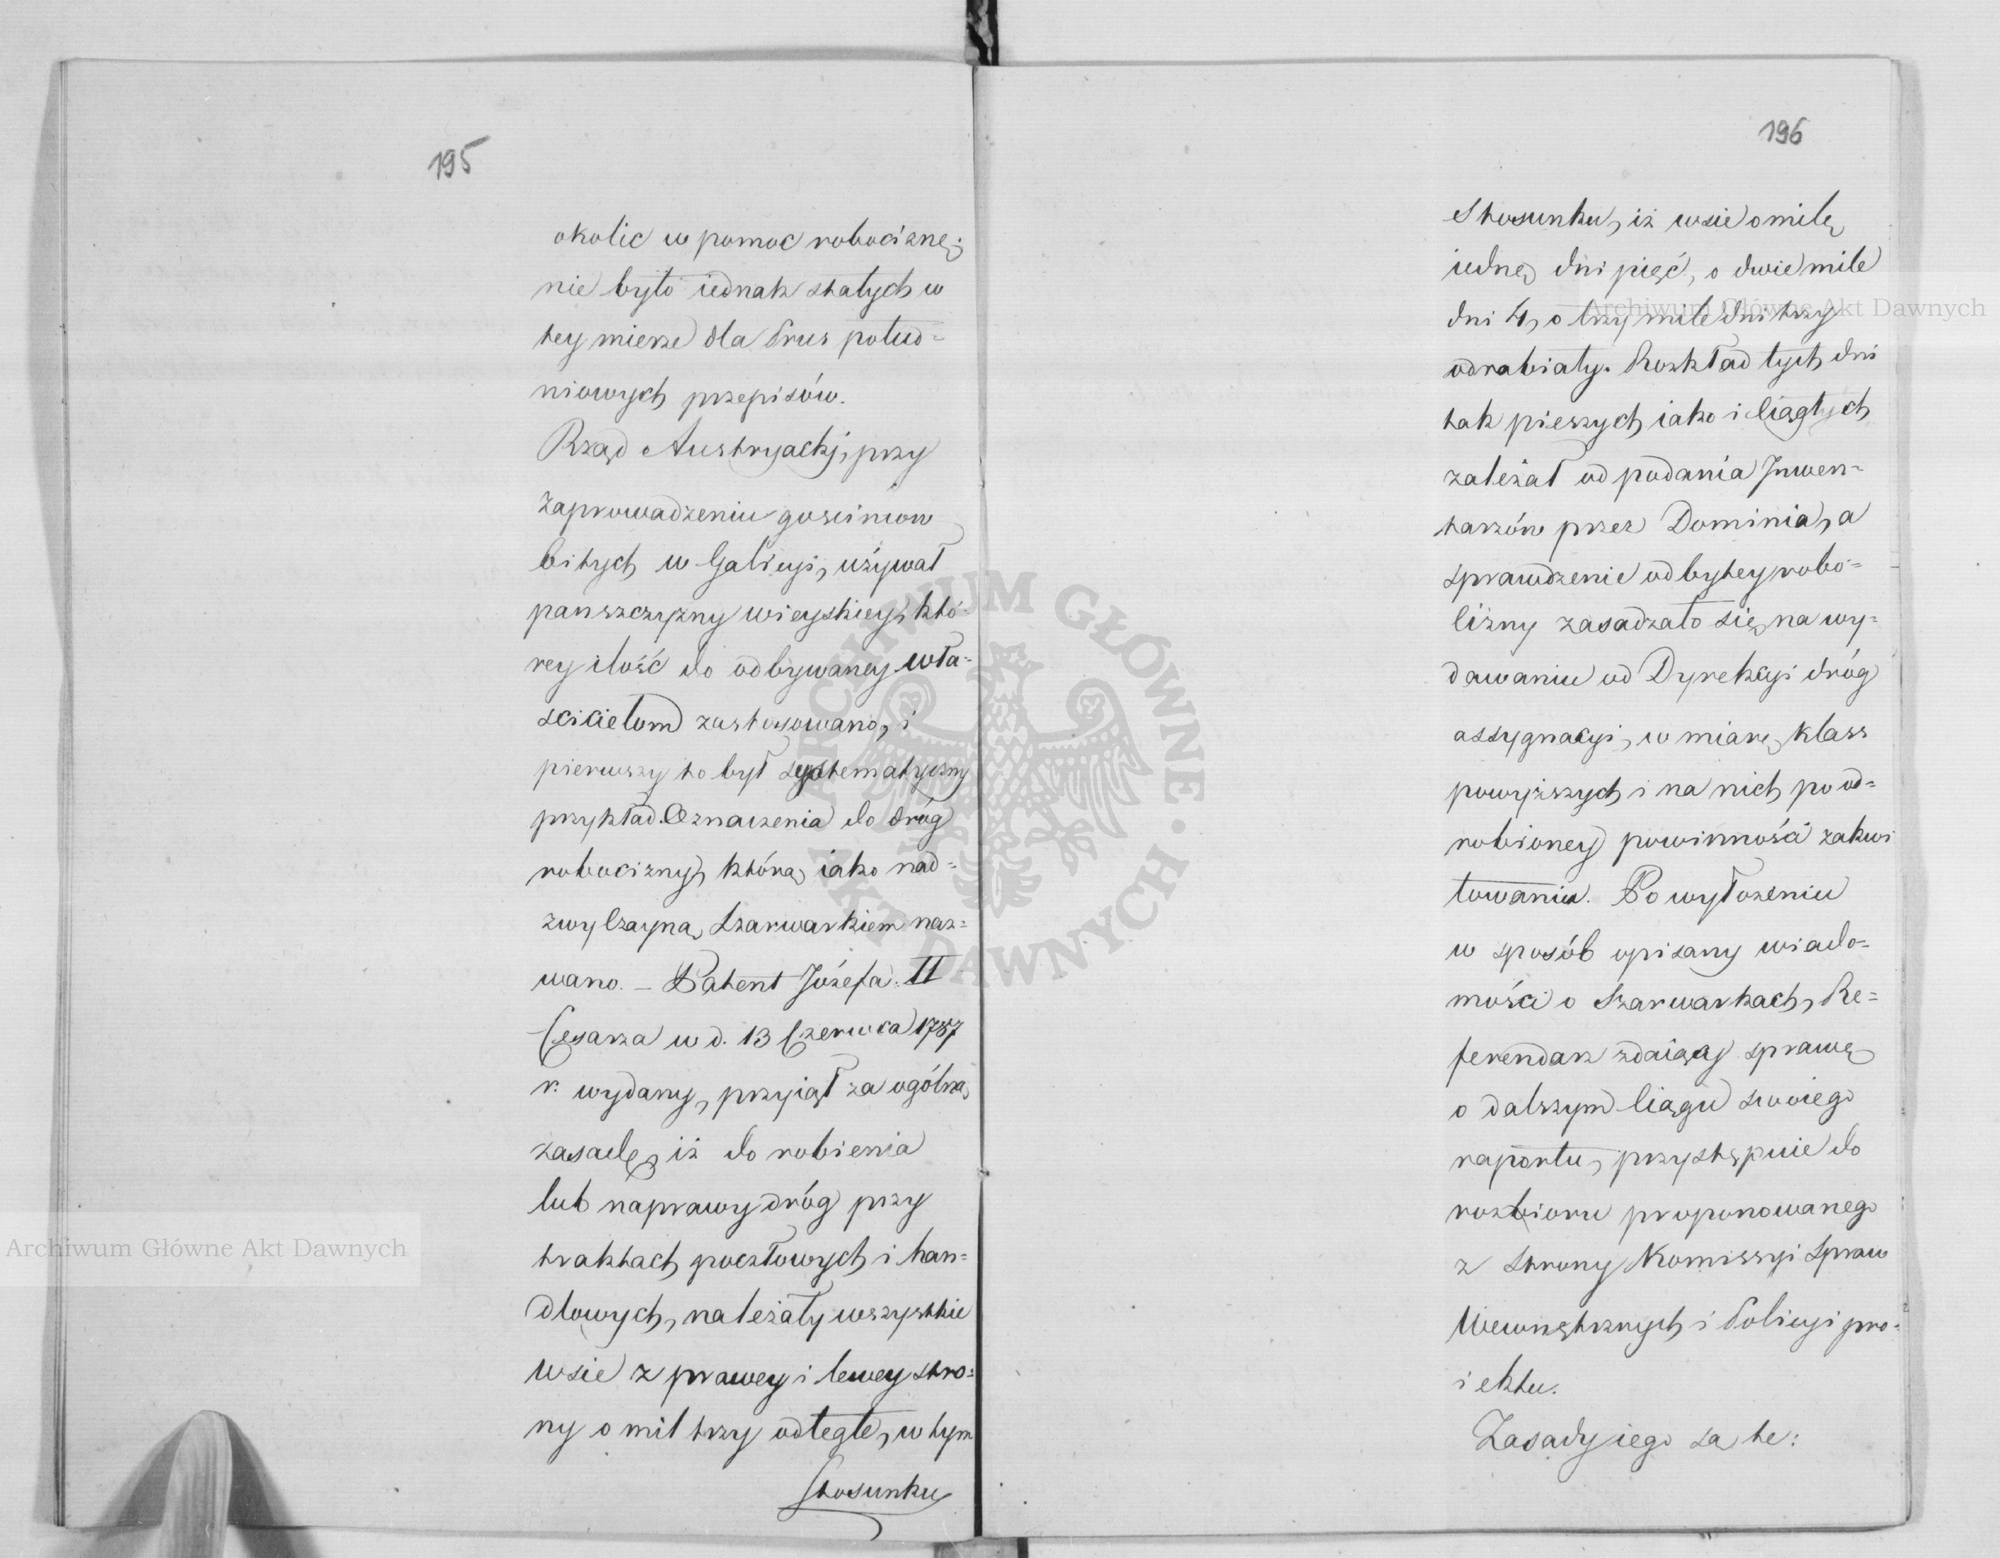 195
okolic w pomoc robociznę;
nie było iednak stałych w
tey mierze dla Prus połud-
niowych przepisów.
Rząd Austryacki, przy
zaprowadzeniu gościncow
bitych w Galicyi, używał
panszczyzny wieyskiey, któ-
rey ilość do odbywaney wła-
scicielom zastosowano, i
pierwszy to był systematyczny
przykład Oznaczenia do dróg
robocizny, którą iako nad-
zwyczayną Szarwarkiem naz-
wano. – Patent Józefa II
Cesarza w d. 13 Czerwca 1787
r. wydany, przyiął za ogólną
zasadę, iż do robienia
lub naprawy dróg przy
traktach pocztowych i han-
dlowych, należały wszystkie
wsie z prawey i lewey stro-
ny o mil trzy odległe, w tym
Stosunku
196
Stosunku, iż wsie o milę
iednę dni pięć, o dwie mile
dni 4, o trzy mile dni trzy
odrabiały. Rozkład tych dni
tak pieszych iako i ciągłych
zależał od podania Inwen-
tarzów przez Dominia, a
sprawdzenie odbytey robo-
cizny zasadzało się na wy-
dawaniu od Dyrekcyi dróg
assygnacyi, w miarę klass
powyższych i na nich po od-
robioney powinności zakwi
towaniu. Po wyłożeniu
w sposób opisany wiado-
mości o Szarwarkach, Re-
ferendarz zdaiąc sprawę
o dalszym ciągu swoiego
raportu, przystępuie do
rozbioru proponowanego
z strony Kommissyi Spraw
Wewnętrznych i Policyi pro-
iektu.
Zasady iego są te:
Archiwum Główne Akt Dawnych
Archiwum Główne Akt Dawnych
ARCHIWUM GŁÓWNE · AKT DAWNYCH ·